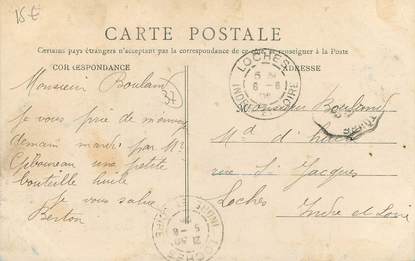 15€
CARTE POSTALE
Certains pays étrangers n'acceptant pas la correspondance de ce se renseigner à la Poste
CORRESPONDANCE
ADRESSE
Monsieur Bouland
37
Je vous prie de m'envoyer
demain mardi par Mr
une petite
bouteille huile
Je vous salue
Berton
Monsieur Bouland
Md d'
rue St Jacques
Loches Indre et Loire
LOCHES
INDRE ET LOIRE
TOURS
LOCHES
INDRE ET LOIRE